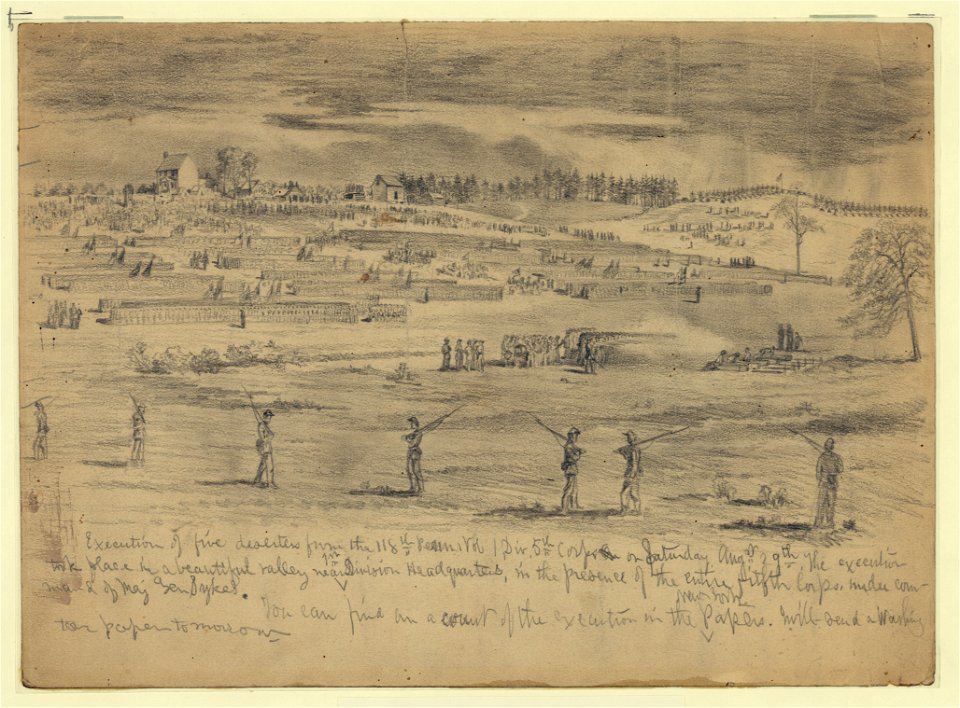 Execution of five deserters from the 118th Penn. Vol 1 Div. 5th Corps on Saturday Augst 29th, the execution
took place in a beautiful valley near 1st Division Headquarters, in the presence of the entire Fifth Corps. under com-
mand of Maj Gen Sykes.
You can find an acount of the execution in the New York Papers. Will send a Washing
ton paper tomorrow